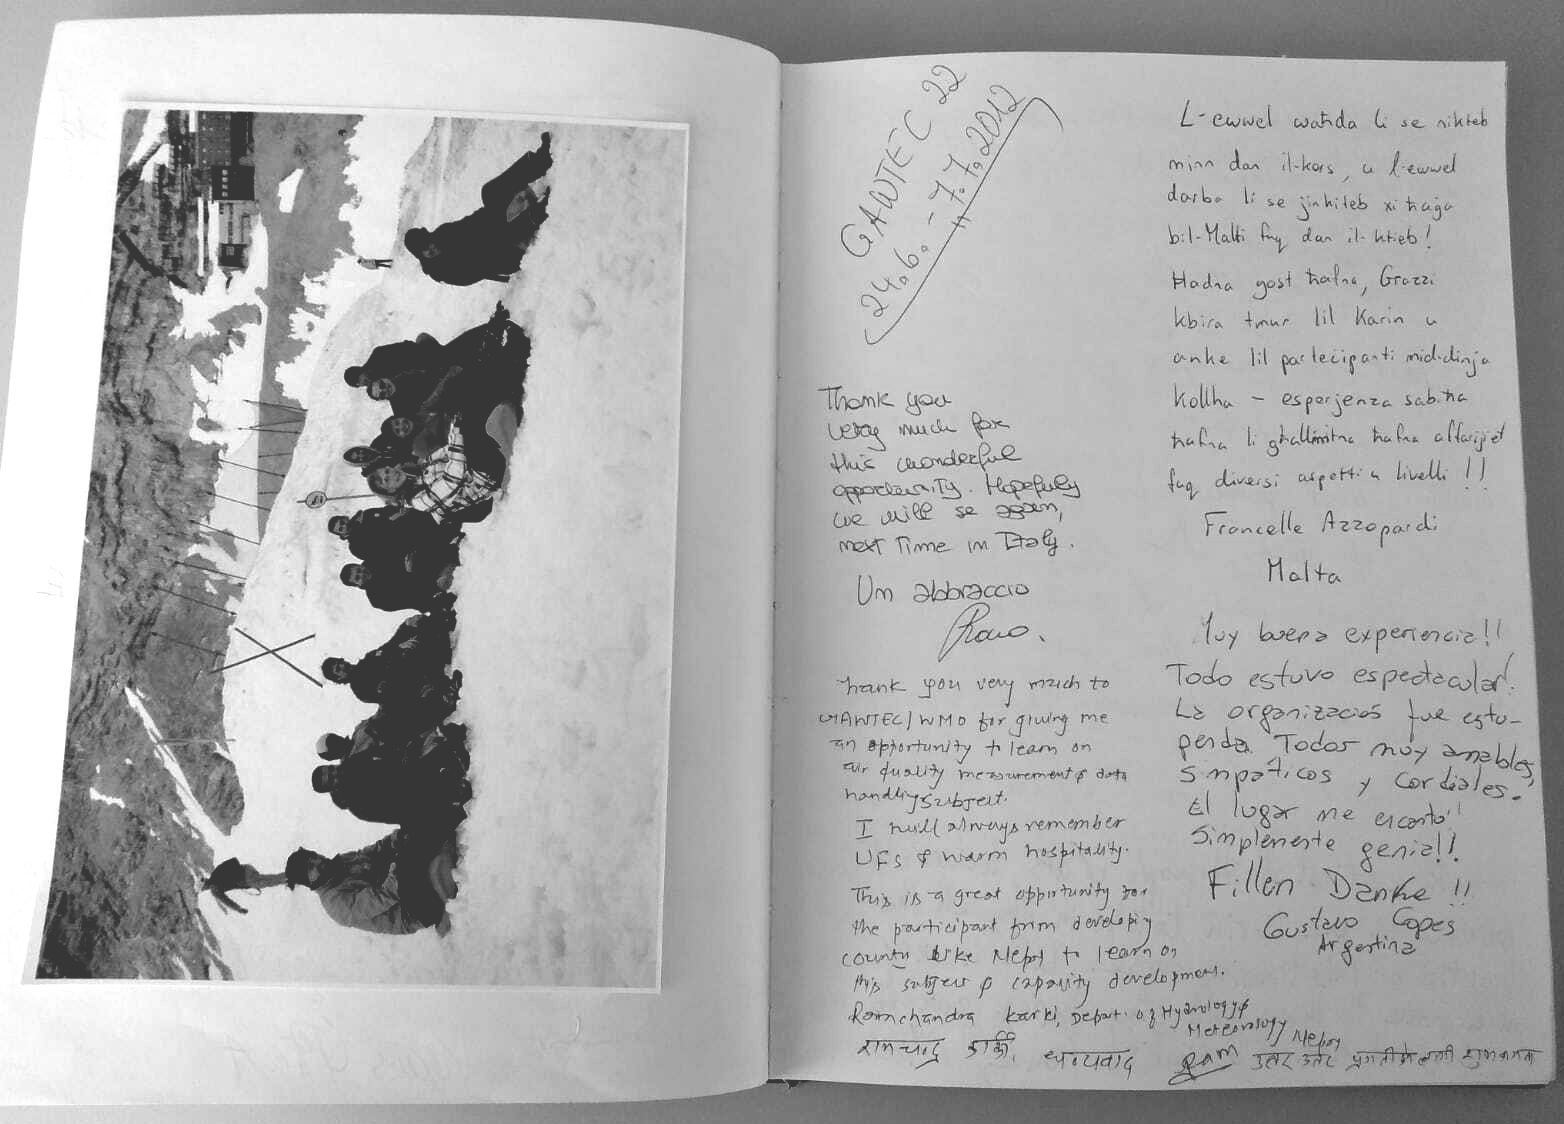 GAWTEC 22
24.6. - 7.7.2012
Thank you
very much for
this wonderful
opportunity. Hopefuly
we will se again,
next time in Italy.
Un abbraccio
Thank you very much to
GAWTEC/WMO for giving me
an opportunity to learn on
air quality measurement & data
handling subject.
I will always remember
UFS & warm hospitality.
This is a great opportunity for
the participant from developing
county like Nepal to learn on
this subject & capacity development.
Ramchandra Karki, Depart. of Hydrology &
Meteorology Nepal
रामचन्द्र कार्की, धन्यवाद Ram
L-ewwel waħda li se nikteb
minn dan il-kors, u l-ewwel
darba li se jinkiteb xi ħaġa
bil-Malti fuq dan il-ktieb!
Ħadna gost ħafna, Grazzi
kbira tmur lil Karin u
anke lil parteċipanti mid-dinja
kollha - esperjenza sabiħa
ħafna li għallmitna ħafna affarijiet
fuq diversi aspetti u livelli !!
Francelle Azzopardi
Malta
Muy buena experiencia!!
Todo estuvo espectacular!
La organización fue estu-
penda. Todos muy amables,
simpáticos y cordiales.
El lugar me encantó!!
Simplemente genial!!
Fillen Danke !!
Gustavo Copes
Argentina